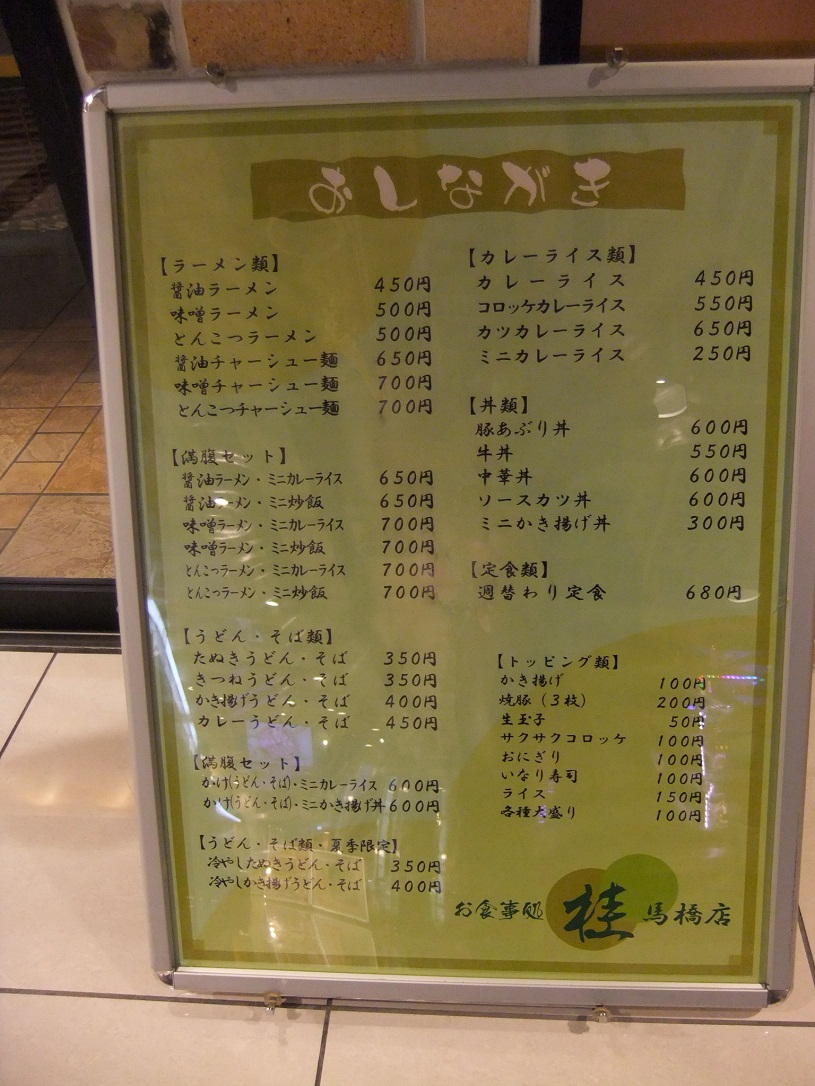 おしながき
【ラーメン類】
醤油ラーメン 450円
味噌ラーメン 500円
とんこつラーメン 500円
醤油チャーシュー麺 650円
味噌チャーシュー麺 700円
とんこつチャーシュー麺 700円
【満腹セット】
醤油ラーメン・ミニカレーライス 650円
醤油ラーメン・ミニ炒飯 650円
味噌ラーメン・ミニカレーライス 700円
味噌ラーメン・ミニ炒飯 700円
とんこつラーメン・ミニカレーライス 700円
とんこつラーメン・ミニ炒飯 700円
【うどん・そば類】
たぬきうどん・そば 350円
きつねうどん・そば 350円
かき揚げうどん・そば 400円
カレーうどん・そば 450円
【満腹セット】
かけ(うどん・そば)・ミニカレーライス 600円
かけ(うどん・そば)・ミニかき揚げ丼 600円
【うどん・そば類・夏季限定】
冷やしたぬきうどん・そば 350円
冷やしかき揚げうどん・そば 400円
【カレーライス類】
カレーライス 450円
コロッケカレーライス 550円
カツカレーライス 650円
ミニカレーライス 250円
【丼類】
豚あぶり丼 600円
牛丼 550円
中華丼 600円
ソースカツ丼 600円
ミニかき揚げ丼 300円
【定食類】
週替わり定食 680円
【トッピング類】
かき揚げ 100円
焼豚（3枚） 200円
生玉子 50円
サクサクコロッケ 100円
おにぎり 100円
いなり寿司 100円
ライス 150円
各種大盛り 100円
お食事処 桂 馬橋店